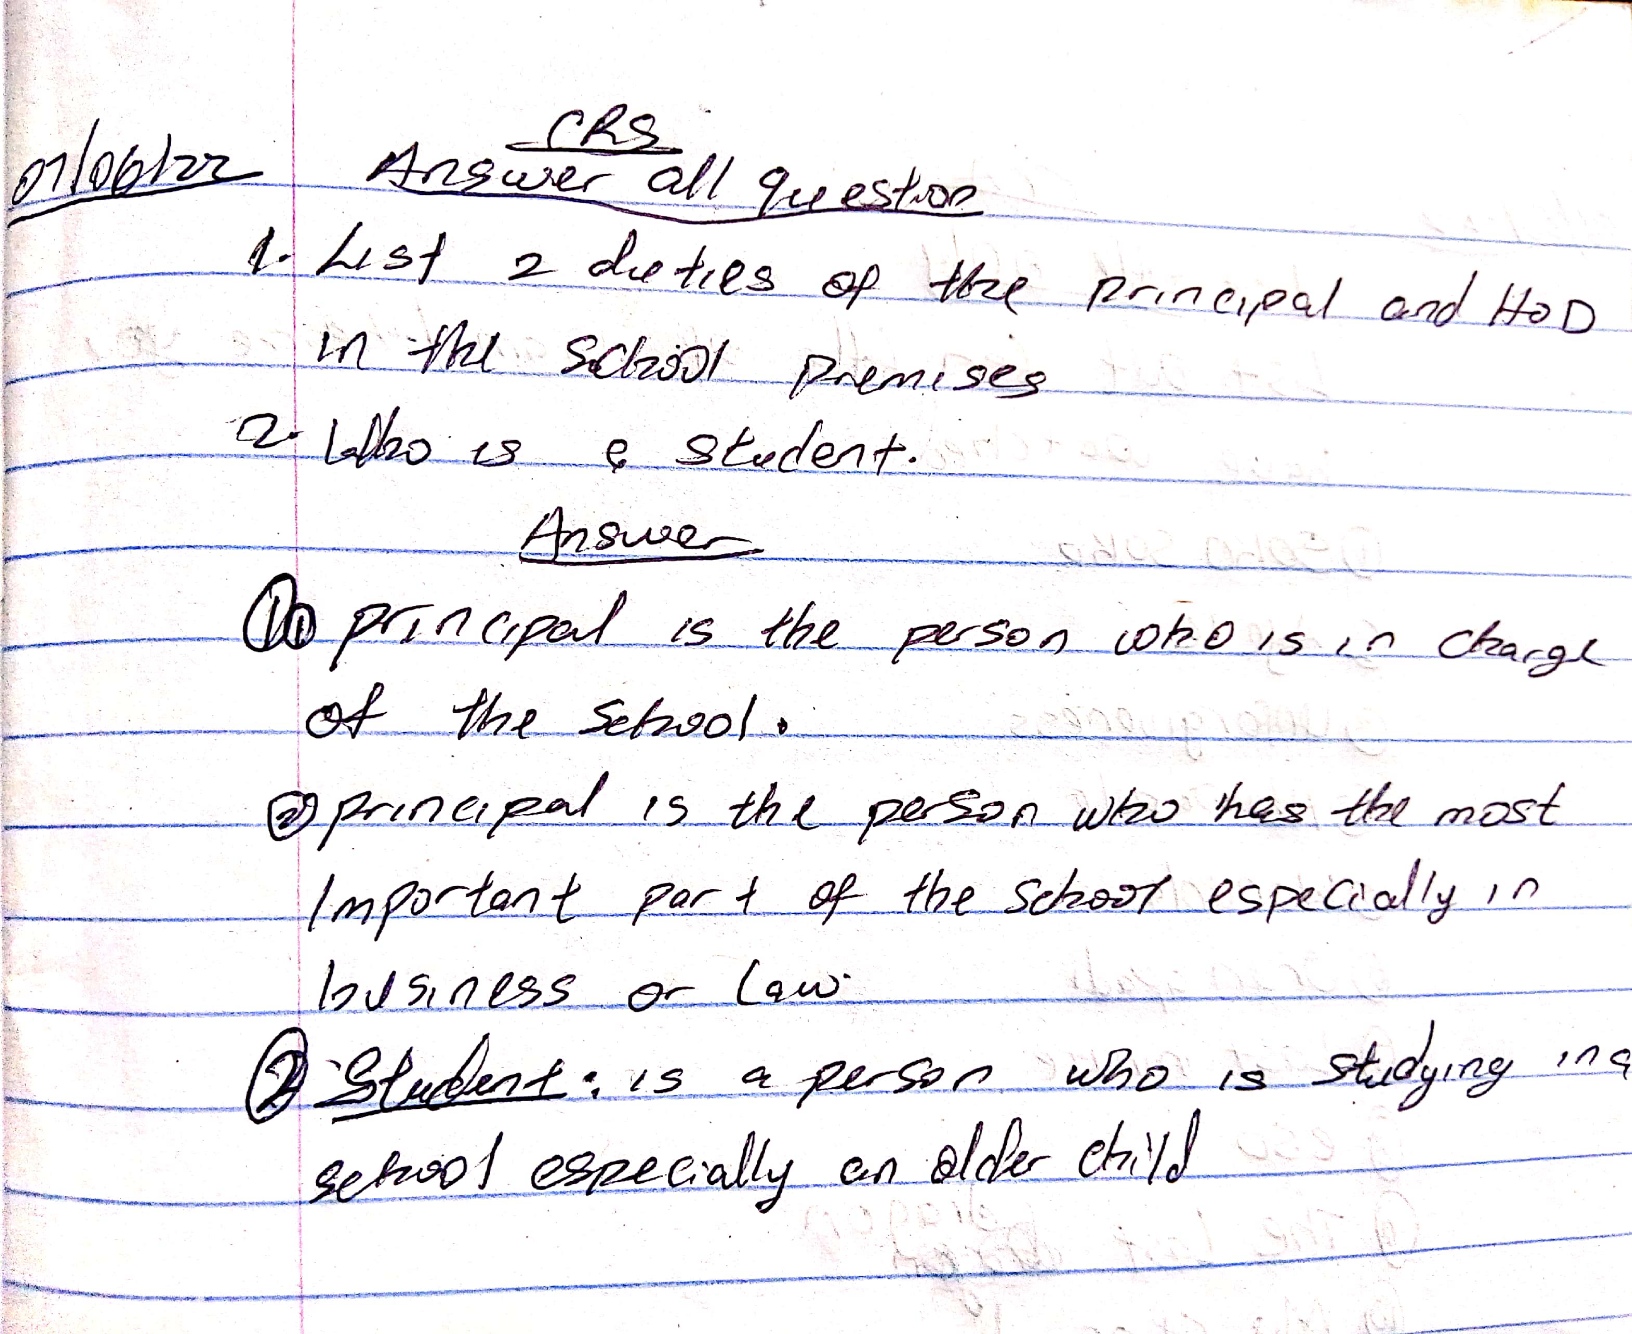 CRS
07/06/22 Answer all question
1. List 2 duties of the principal and HOD
in the school premises
2. Who is a student.
Answer
1 (1) principal is the person who is in charge
of the school.
(2) principal is the person who has the most
Important part of the school especially in
business or law.
(2) Student: is a person who is studying in a
school especially an older child